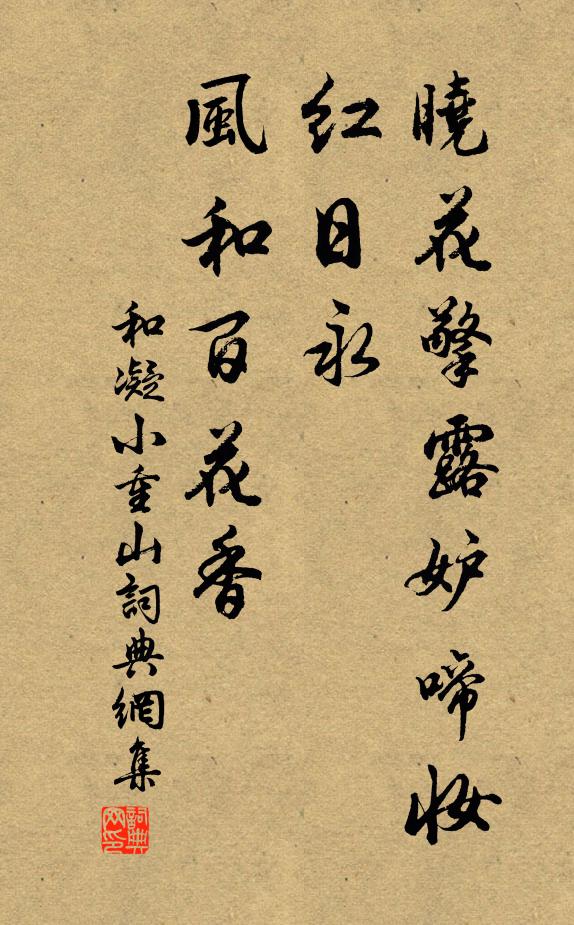 曉花擎露妒啼妝
紅日永
風和百花香
和凝小重山詞典網集
詞典网印